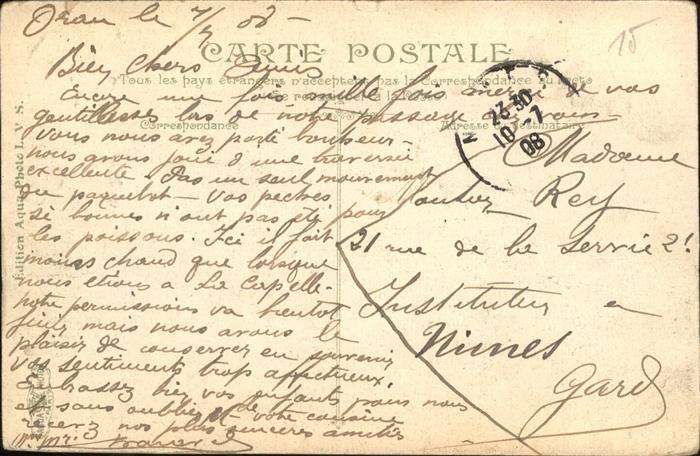 Oran le 7/7 08 -
15
CARTE POSTALE
Tous les pays étrangers n'acceptent pas la Correspondance au recto
Correspondance
Adresse du destinataire
Edition Aqua-Photo L. V. S.
Bien chers Amis
Encore une fois mille fois merci de vos
gentillesses lors de notre passage
Vous nous avez porté bonheur -
nous avons joui d'une traversée
excellente. Pas un seul mouvement
du paquebot - vos pêches
si bonnes n'ont pas été pour
les poissons. Ici il fait
moins chaud que lorsque
nous étions à La Capelle.
notre permission va bientot
finir mais nous avons le
plaisir de conserver en souvenir
vos sentiments trop affectueux.
Embrassez bien vos enfants pour nous
et sans oublier votre cousine
recevez nos plus sincères amitiés
23 30
10 - 7
08
Madame
Rey
21 rue de la Servie 21
Instituteur en
Nimes
Gard